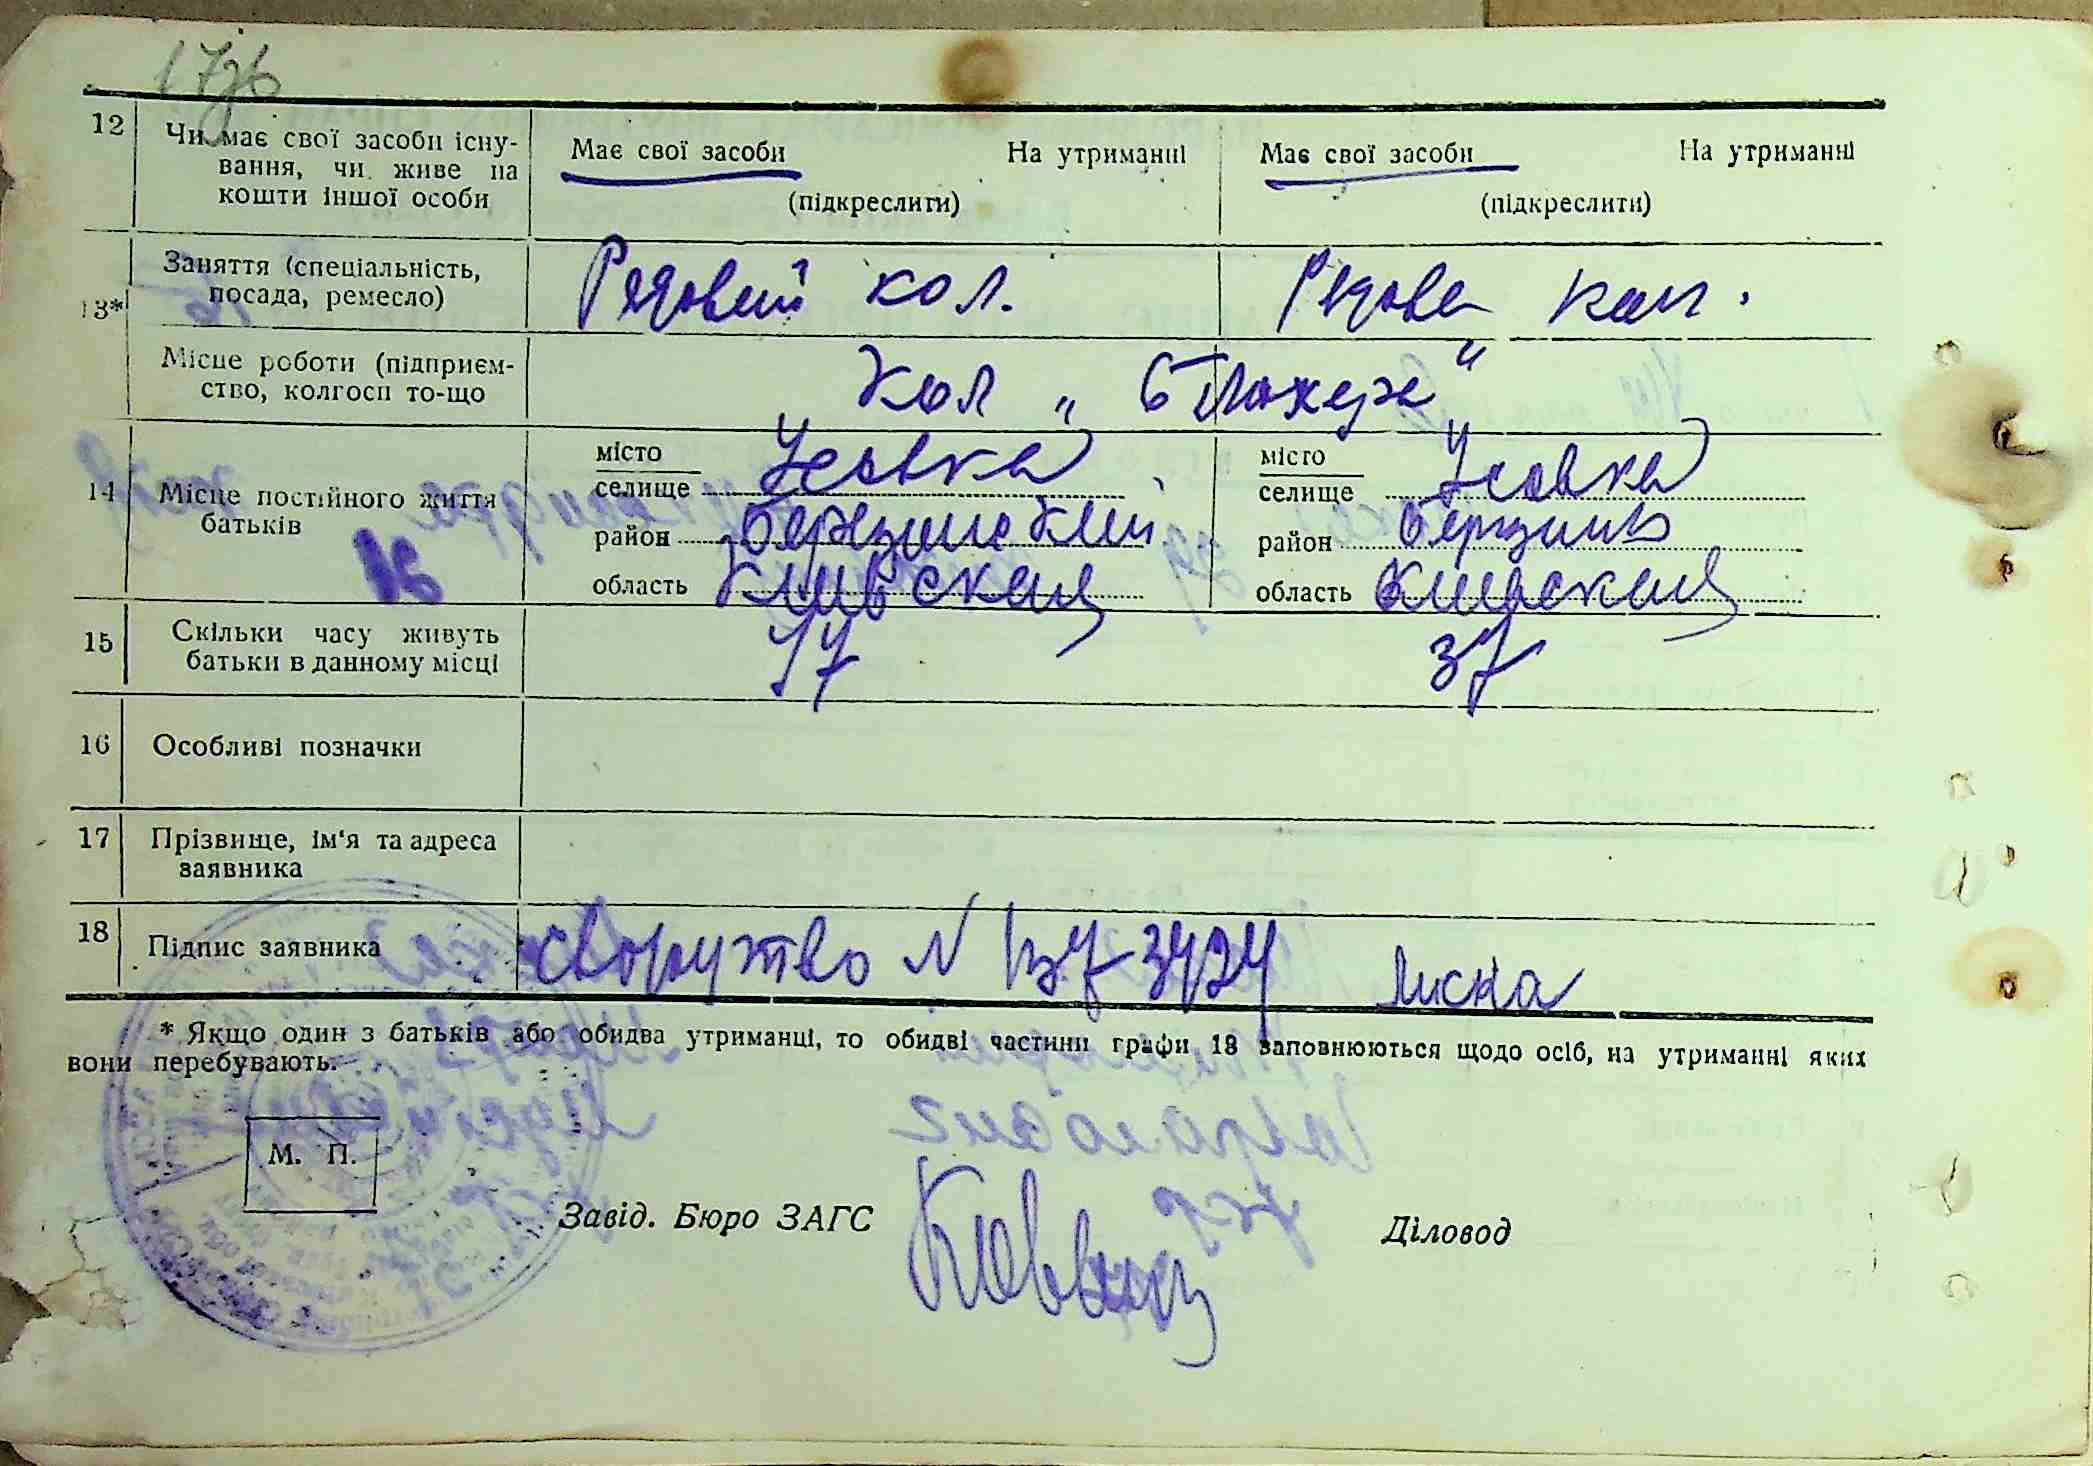 17зв
12 Чи має свої засоби існу-
вання, чи живе на
кошти іншої особи
Має свої засоби На утриманні Має свої засоби На утриманні
(підкреслити) (підкреслити)
13* Заняття (спеціальність,
посада, ремесло)
Рядовий кол. Рядова кол.
Місце роботи (підприєм-
ство, колгосп то-що
Кол „ "
14 Місце постійного життя
батьків
місто
селище Усовка
район Березанський
область Київская
місто
селище Усовка
район Березань
область Киевская
15 Скільки часу живуть
батьки в данному місці
37
16 Особливі позначки
17 Прізвище, ім'я та адреса
заявника
18 Підпис заявника
N Лиска
* Якщо один з батьків або обидва утриманці, то обидві частини графи 13 заповнюються щодо осіб, на утриманні яких
вони перебувають.
М. П.
Завід. Бюро ЗАГС Діловод